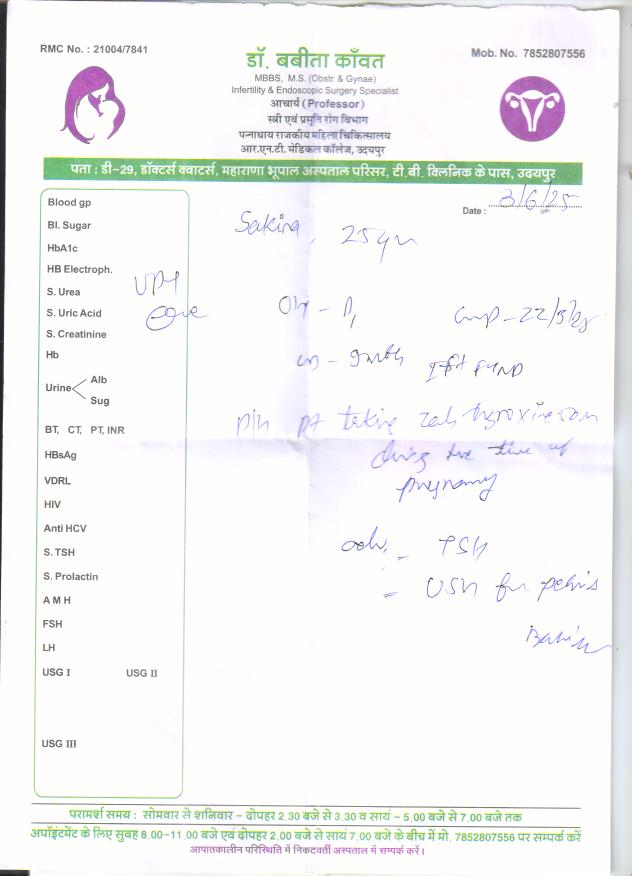 RMC No. : 21004/7841
Mob. No. 7852807556
डॉ. बबीता काँवत
MBBS, M.S. (Obstr. & Gynae)
Infertility & Endoscopic Surgery Specialist
आचार्य (Professor)
स्त्री एवं प्रसूति रोग विभाग
पन्नाधाय राजकीय महिला चिकित्सालय
आर.एन.टी. मेडिकल कॉलेज, उदयपुर
पता : डी-29, डॉक्टर्स क्वाटर्स, महाराणा भूपाल अस्पताल परिसर, टी.बी. क्लिनिक के पास, उदयपुर
Date : 3/6/25
Sakina, 25 yr
Blood gp
Bl. Sugar
HbA1c
HB Electroph.
S. Urea
UPT
S. Uric Acid
S. Creatinine
Hb
Urine
Alb
Sug
BT, CT, PT, INR
HBsAg
VDRL
HIV
Anti HCV
S. TSH
S. Prolactin
A M H
FSH
LH
USG I
USG II
USG III
OH - P1
LMP - 22/5/25
FTND
P/H pt taking tab thyroxine
during the time of
pregnancy
adv.
- TSH
- USG for pelvis
परामर्श समय : सोमवार से शनिवार - दोपहर 2.30 बजे से 3.30 व सायं - 5.00 बजे से 7.00 बजे तक
अपॉइंटमेंट के लिए सुबह 8.00-11.00 बजे एवं दोपहर 2.00 बजे से सायं 7.00 बजे के बीच में मो. 7852807556 पर सम्पर्क करें
आपातकालीन परिस्थिति में निकटवर्ती अस्पताल में सम्पर्क करें।